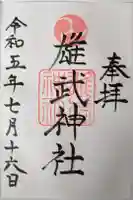 奉拝
雄武神社
令和五年七月十六日